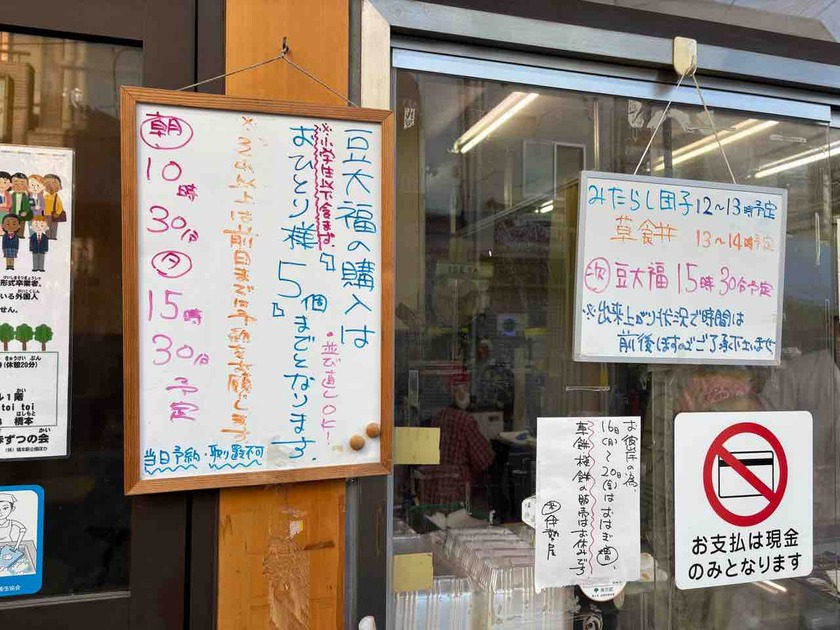 豆大福の購入は
※小学生以下含まず。
おひとり様『5個』までとなります。
・並び直しOK!
※3個以上は前日までに予約をお願いします
朝
10時
30分
夕
15時
30分
予定
当日予約・取り置き不可
みたらし団子12～13時予定
草餅 13～14時予定
次 豆大福 15時30分予定
※出来上がり状況で時間は
前後しますのでご了承下さいませ
お彼岸の為、
16日(月)～20日(金)はおはぎ(増)、
草餅桜餅の販売はお休みです
伊勢屋
お支払は現金
のみとなります
形式卒業者。
いる外国人
せん。
(休憩20分)
ル1階
toi toi
橋本
ずつの会